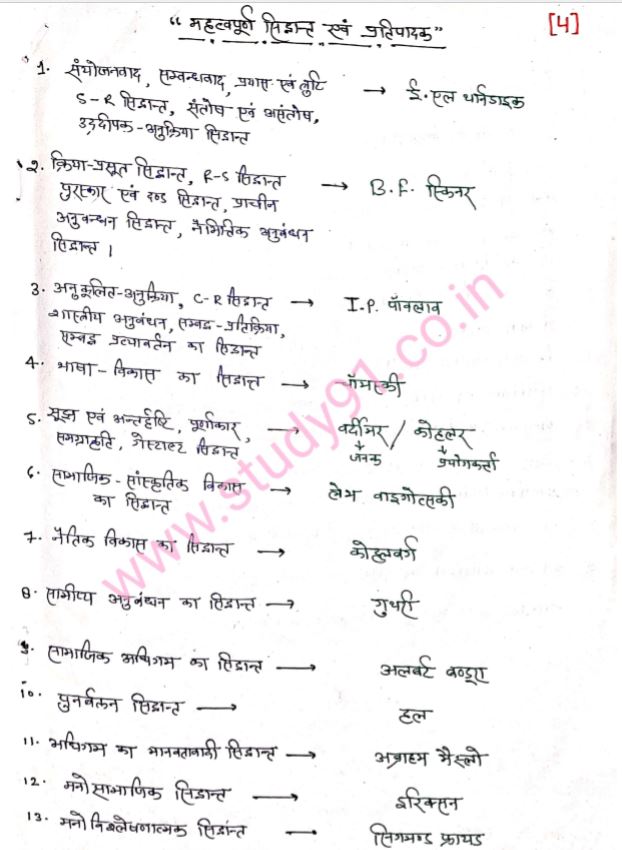 "महत्वपूर्ण सिद्धान्त एवं प्रतिपादक" [4]
1. संयोजनवाद, सम्बन्धवाद, प्रयास एवं त्रुटि → ई. एल थार्नडाइक
S-R सिद्धान्त, संतोष एवं असंतोष,
उद्दीपक-अनुक्रिया सिद्धान्त
2. क्रिया-प्रसूत सिद्धान्त, R-S सिद्धान्त → B.F. स्किनर
पुरस्कार एवं दण्ड सिद्धान्त, प्राचीन
अनुबन्धन सिद्धान्त, नैमित्तिक अनुबंधन
सिद्धान्त।
3. अनुकूलित-अनुक्रिया, C-R सिद्धान्त → I.P. पॉवलाव
शास्त्रीय अनुबंधन, सम्बद्ध-प्रतिक्रिया,
सम्बद्ध प्रत्यावर्तन का सिद्धान्त
4. भाषा-विकास का सिद्धान्त → चॉमस्की
5. सूझ एवं अन्तर्दृष्टि, पूर्णाकार, → वर्दीमर / कोहलर
समग्राकृति, गेस्टाल्ट सिद्धान्त जनक प्रयोगकर्ता
6. सामाजिक-सांस्कृतिक विकास → लेभ वाइगोत्सकी
का सिद्धान्त
7. नैतिक विकास का सिद्धान्त → कोहलबर्ग
8. सामीप्य अनुबंधन का सिद्धान्त → गुथरी
9. सामाजिक अधिगम का सिद्धान्त → अलबर्ट बण्डूरा
10. पुनर्बलन सिद्धान्त → हल
11. अधिगम का मानवतावादी सिद्धान्त → अब्राहम मैस्लो
12. मनोसामाजिक सिद्धान्त → इरिक्सन
13. मनोविश्लेषणात्मक सिद्धांत → सिगमण्ड फ्रायड
www.study91.co.in